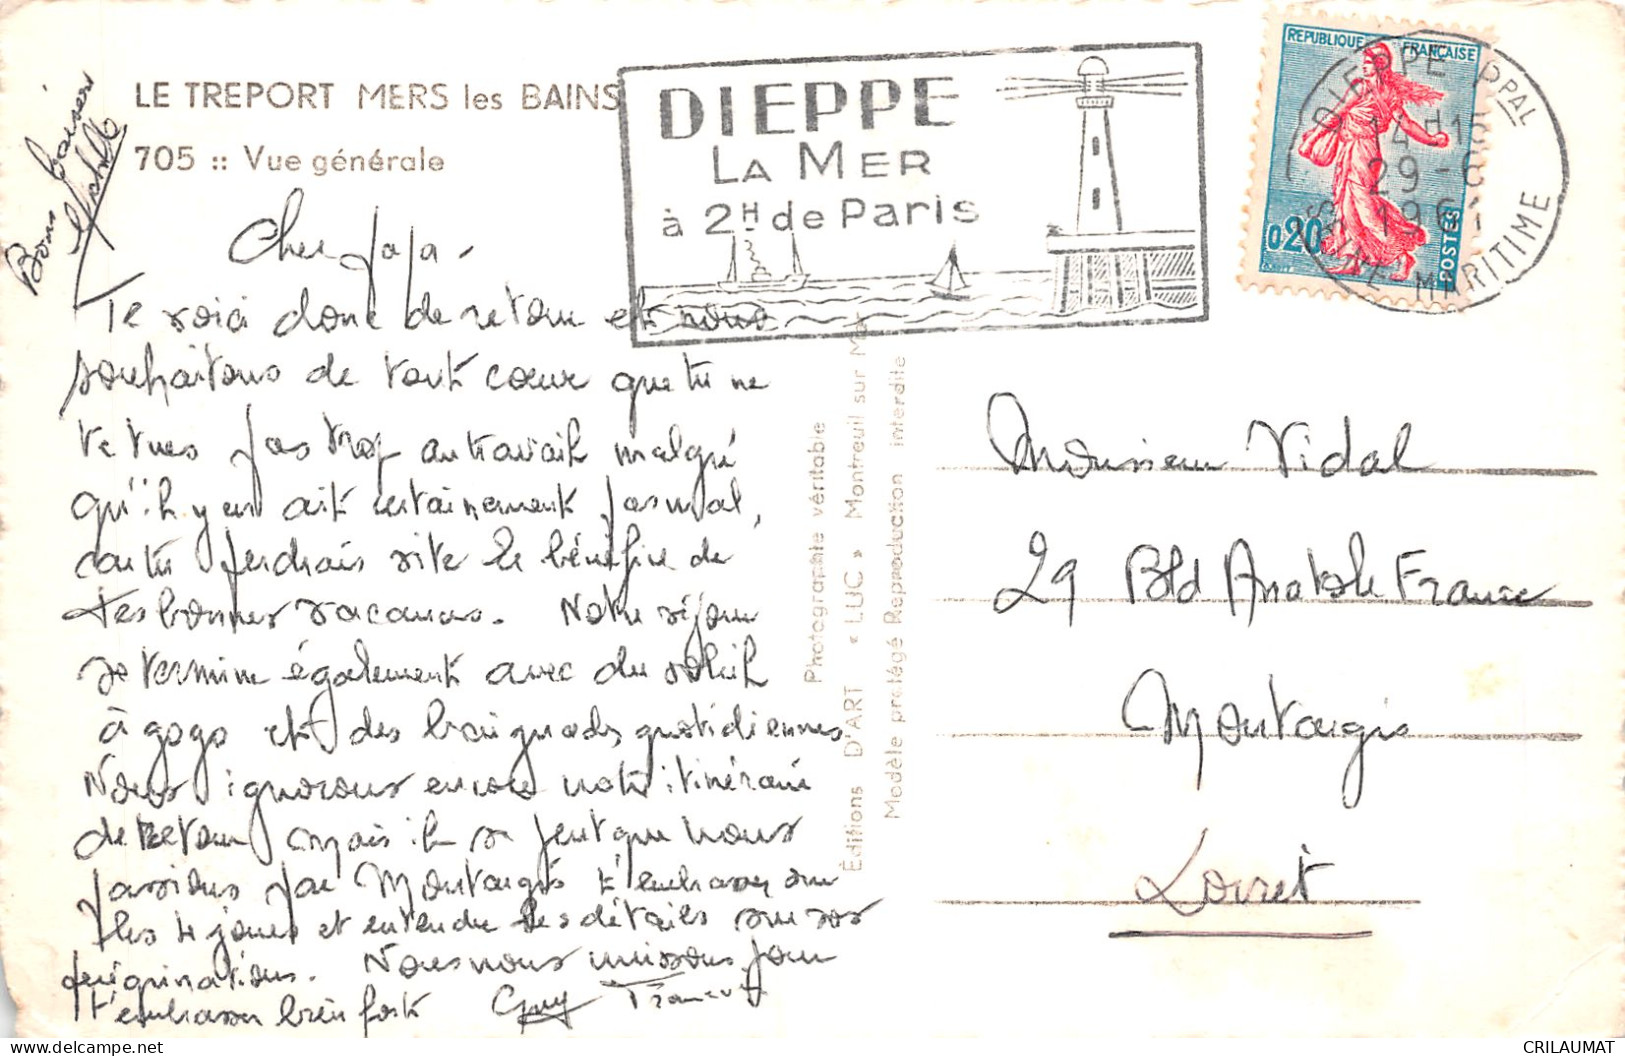 LE TREPORT MERS les BAINS
705 :: Vue générale
Bons baisers
DIEPPE
LA MER
à 2H de Paris
REPUBLIQUE FRANÇAISE
0,20
POSTES
DIEPPE PPAL
29-6
1961
SEINE MARITIME
Cher papa,
Te voici donc de retour et nous
souhaitons de tout cœur que tu ne
te tues pas trop au travail malgré
qu'il y en ait certainement pas mal,
car tu perdrais vite le bénéfice de
tes bonnes vacances. Notre séjour
se termine également avec du soleil
à gogo et des baignades quotidiennes
Nous ignorons encore notre itinéraire
de retour mais il se peut que nous
passions par Montargis t'embrasser sur
les 4 joues et entendre les détails sur vos
périgrinations. Nous nous unissons pour
t'embrasser bien fort Guy France
Photographie véritable
Éditions D'ART « LUC » Montreuil sur Mer
Modèle protégé Reproduction interdite
Monsieur Vidal
29 Bld Anatole France
Montargis
Loiret
CRILAUMAT